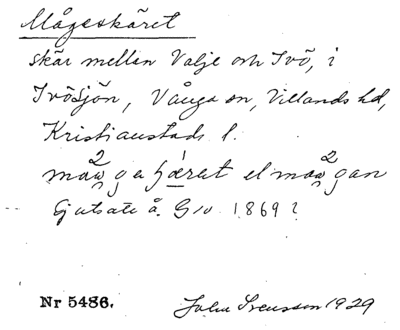 Mågeskäret
skär mellan Valje och Ivö, i
Ivösjön, Vånga sn, Villands hd,
Kristianstads l.
el
Gjutsate å. Giv 1869?
Nr 5486.
John Svensson 1929